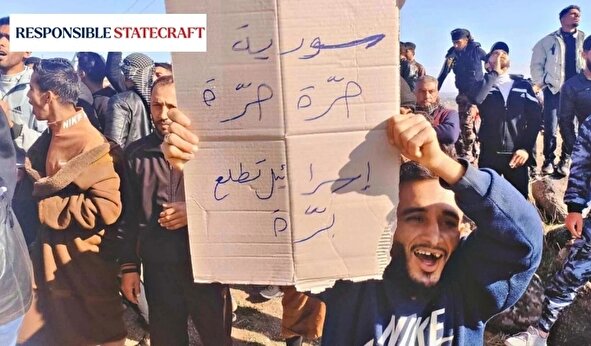 RESPONSIBLE STATECRAFT
سورية
حرّة حرّة
إسرائيل تطلع
برّة
NIKE
NIKE